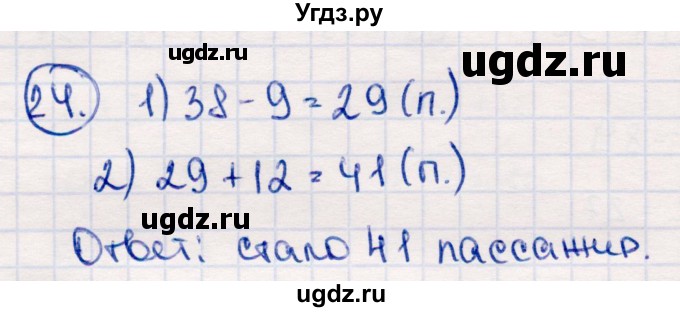 Угдз.ру
ugdz.ru ugdz.ru
24. 1) 38 - 9 = 29 (п.)
2) 29 + 12 = 41 (п.)
ugdz.ru ugdz.ru
Ответ: стало 41 пассажир.
ugdz.ru